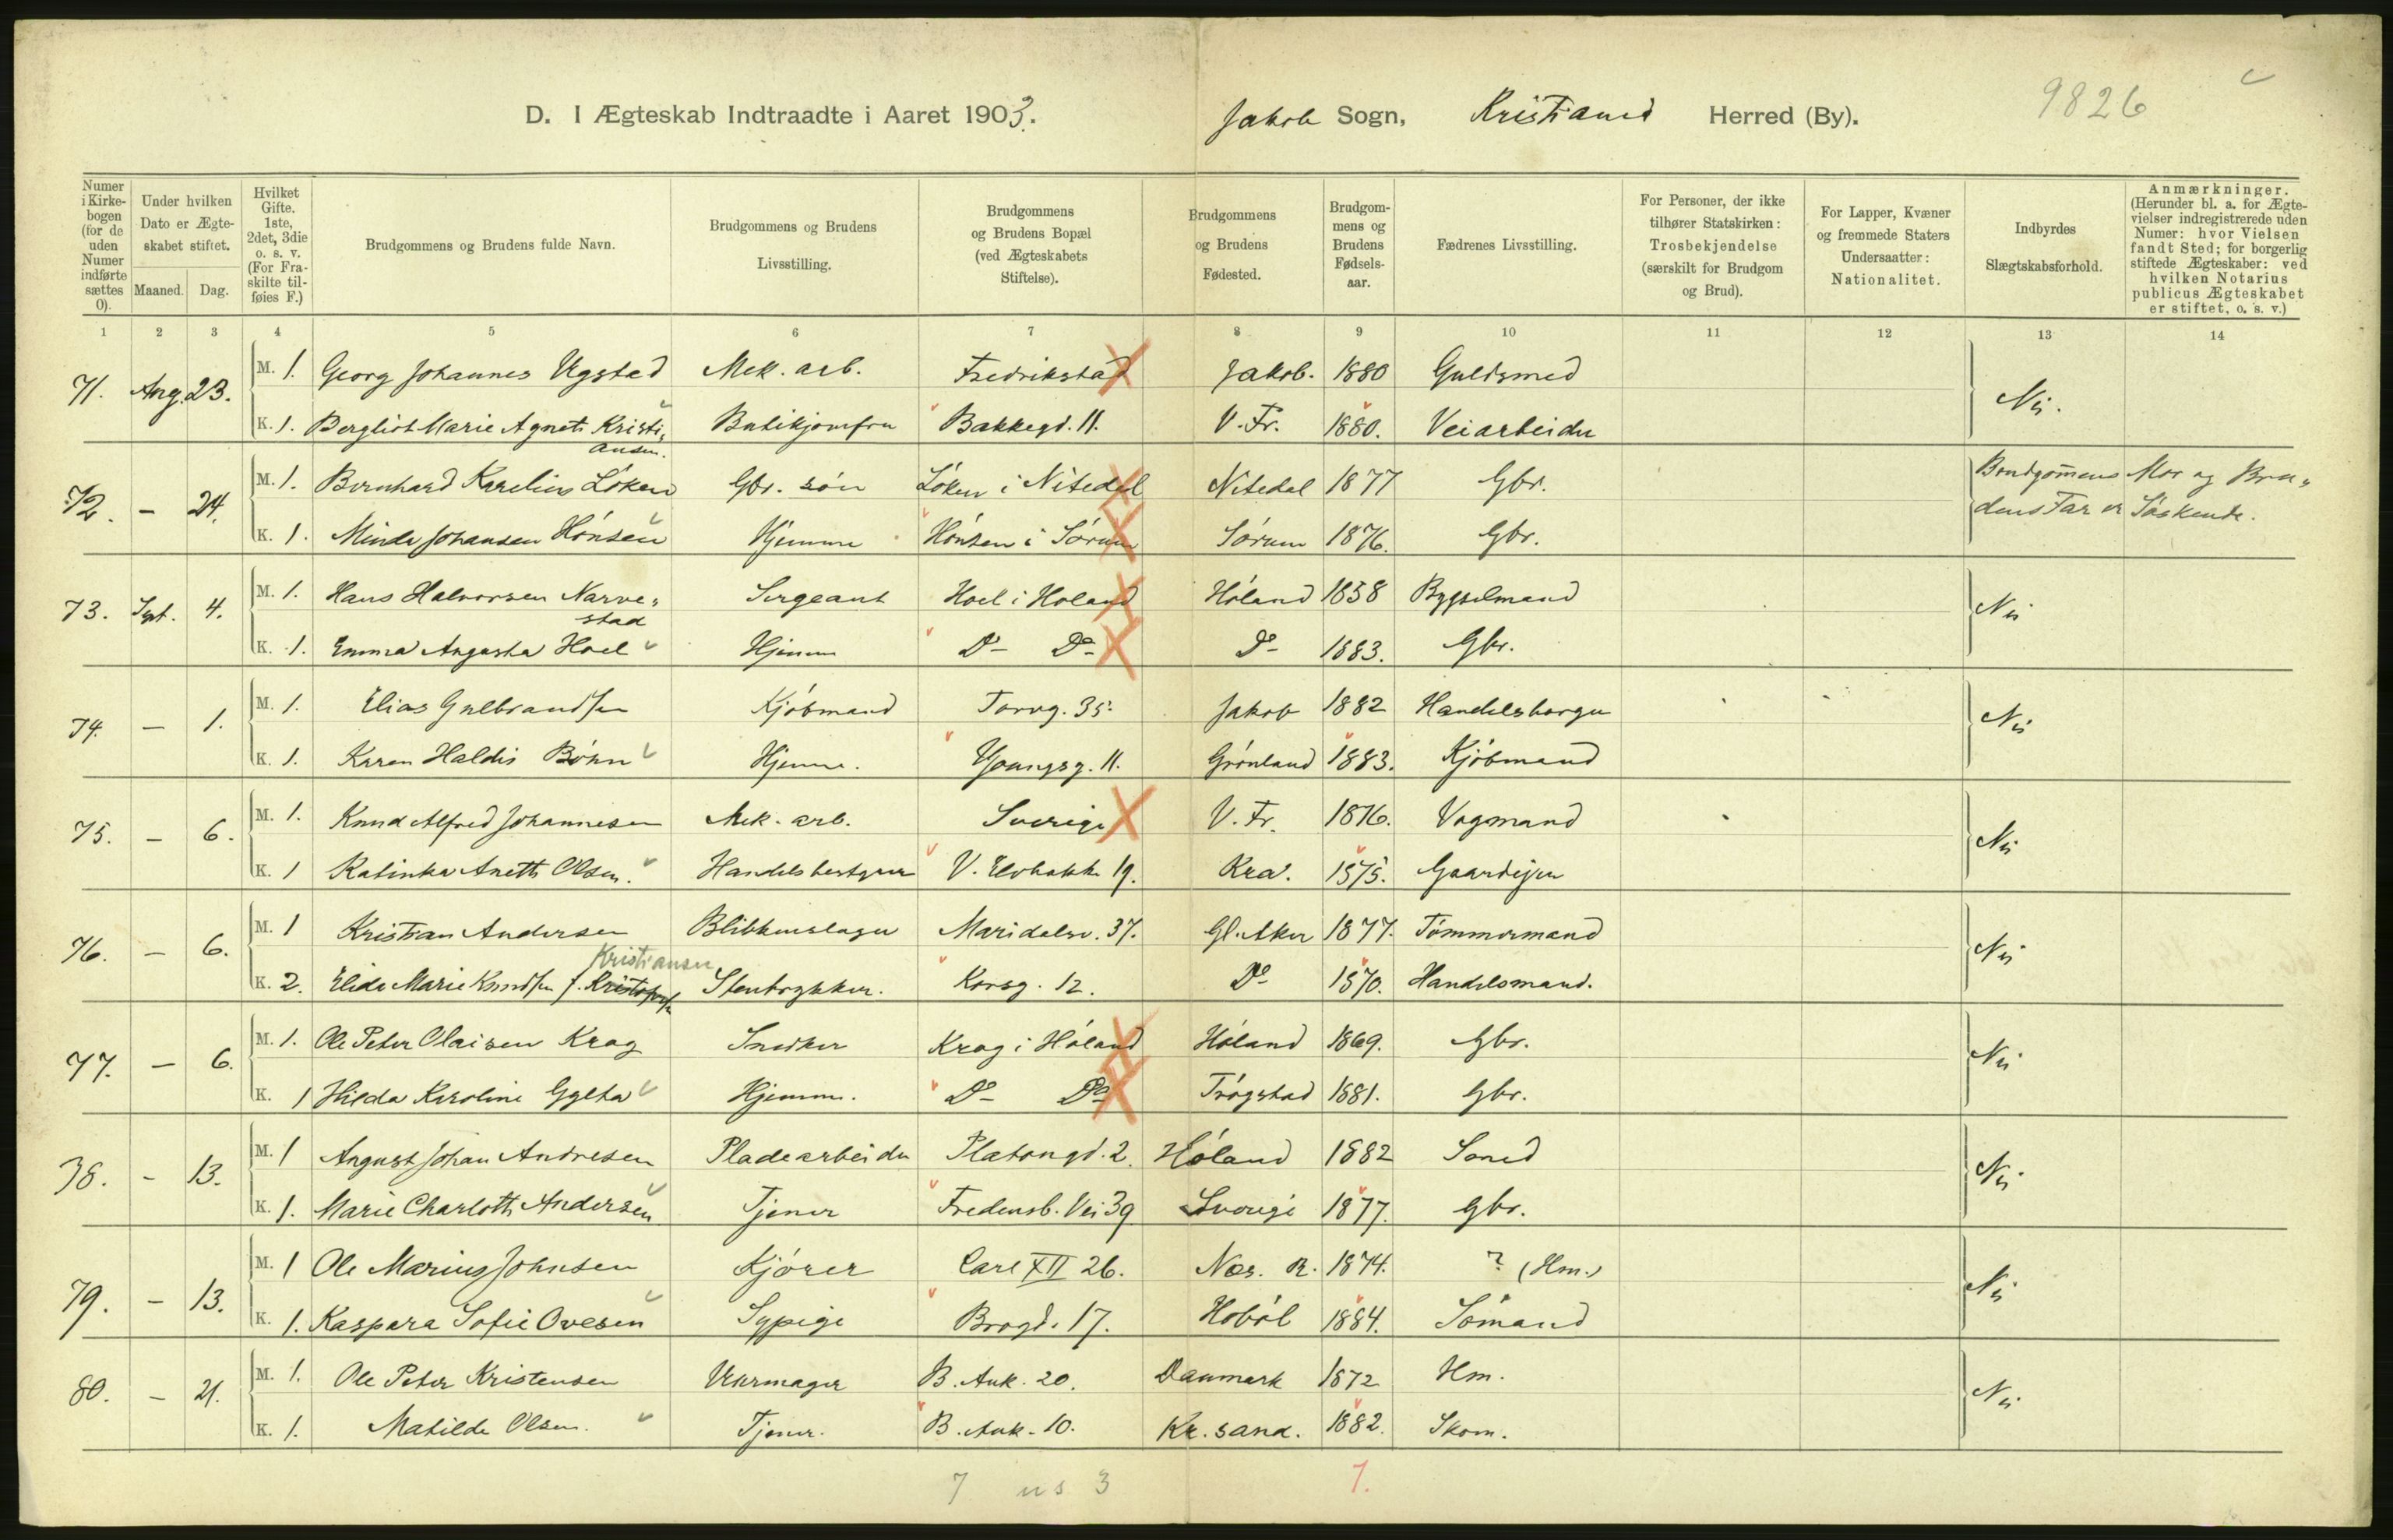 D. I Ægteskab Indtraadte i Aaret 1903. Jakob Sogn, Kristiania Herred (By). 9826
Numer i Kirkebogen (for de uden Numer indførte sættes 0).
Under hvilken Dato er Ægteskabet stiftet.
Maaned. Dag.
Hvilket Gifte. 1ste, 2det, 3die o. s. v. (For Fraskilte tilføies F.)
Brudgommens og Brudens fulde Navn.
Brudgommens og Brudens Livsstilling.
Brudgommens og Brudens Bopæl (ved Ægteskabets Stiftelse).
Brudgommens og Brudens Fødested.
Brudgommens og Brudens Fødselsaar.
Fædrenes Livsstilling.
For Personer, der ikke tilhører Statskirken: Trosbekjendelse (særskilt for Brudgom og Brud).
For Lapper, Kvæner og fremmede Staters Undersaatter: Nationalitet.
Indbyrdes Slægtskabsforhold.
Anmærkninger. (Herunder bl. a. for Ægtevielser indregistrerede uden Numer: hvor Vielsen fandt Sted; for borgerlig stiftede Ægteskaber: ved hvilken Notarius publicus Ægteskabet er stiftet, o. s. v.)
1 2 3 4 5 6 7 8 9 10 11 12 13 14
71. Aug. 23. M. 1. Georg Johannes Ugstad Mek. arb. Fredrikstad Jakob. 1880 Guldsmed Nei.
K. 1. Bergliot Marie Agnete Kristiansen. Butikjomfru Bakkegd. 11. V. Fr. 1880. Veiarbeider
72. - 24. M. 1. Bernhard Karelius Løken Gbr. søn Løken i Nitedal Nitedal 1877 Gbr. Brudgomens Mor og Brudens Far er Søskende.
K. 1. Minda Johansen Hønsen Hjemme Hønsen i Sørum Sørum 1876. Gbr.
73. Sept. 4. M. 1. Hans Halvorsen Narvestad Sergeant Hoel i Høland Høland 1858 Bygselmand Nei
K. 1. Emma Augusta Hoel Hjemme Do Do Do 1883. Gbr.
74. - 1. M. 1. Elias Gulbrandsen Kjøbmand Torvg. 35. Jakob 1882 Handelsborger Nei
K. 1. Karen Haldis Bøhn Hjemme. Youngsg. 11. Grønland 1883. Kjøbmand
75. - 6. M. 1. Knud Alfred Johannesen Mek. arb. Sverige V. Fr. 1876. Vognmand Nei
K. 1 Katinka Anette Olsen. Handelsbestyrer V. Elvbakke 19. Kra. 1875. Gaardejer
76. - 6. M. 1 Kristian Andersen Blikkenslager Maridalsv. 37. Gl. Aker 1877. Tømmermand Nei
Kristiansen
K. 2. Elida Marie Knudsen f. Kristofersen Stentrykker. Korsg. 12. Do 1870. Handelsmand.
77. - 6. M. 1. Ole Peter Olaisen Krog Snedker Krog i Høland Høland 1869. Gbr. Nei
K. 1 Hilda Karoline Gylta Hjemme. Do Do Trøgstad 1881. Gbr.
78. - 13. M. 1 August Johan Andresen Pladearbeider Platougd. 2. Høland 1882 Smed Nei
K. 1. Marie Charlotte Andersen Tjener Fredensb. Vei 39 Sverige 1877. Gbr.
79. - 13. M. 1 Ole Marius Johnsen Kjører Carl XII 26. Nes. R. 1874. ? (Hm.) Nei
K. 1. Kaspara Sofie Ovesen Sypige Brogd. 17. Hobøl 1884. Sømand
80. - 21. M. 1. Ole Peter Kristensen Urmager B. Ank. 20. Danmark 1872 Hm. Nei.
K. 1. Matilde Olsen. Tjener. B. Ank. 10. Kr. sand. 1882. Skom.
7 us 3 7.